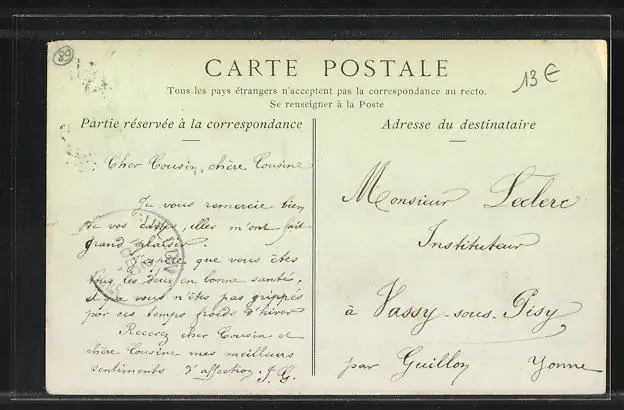 89
CARTE POSTALE
13 €
Tous les pays étrangers n'acceptent pas la correspondance au recto.
Se renseigner à la Poste
Partie réservée à la correspondance
Cher Cousin, chère Cousine
Je vous remercie bien
de vos cartes, elles m'ont fait
grand plaisir.
J'espère que vous êtes
tous les deux en bonne santé,
et que vous n'êtes pas grippés
par ces temps froids d'hiver
Recevez cher Cousin et
chère Cousine mes meilleurs
sentiments d'affection. J. G.
Adresse du destinataire
Monsieur Leclerc
Instituteur
à Vassy-sous-Pisy,
par Guillon Yonne